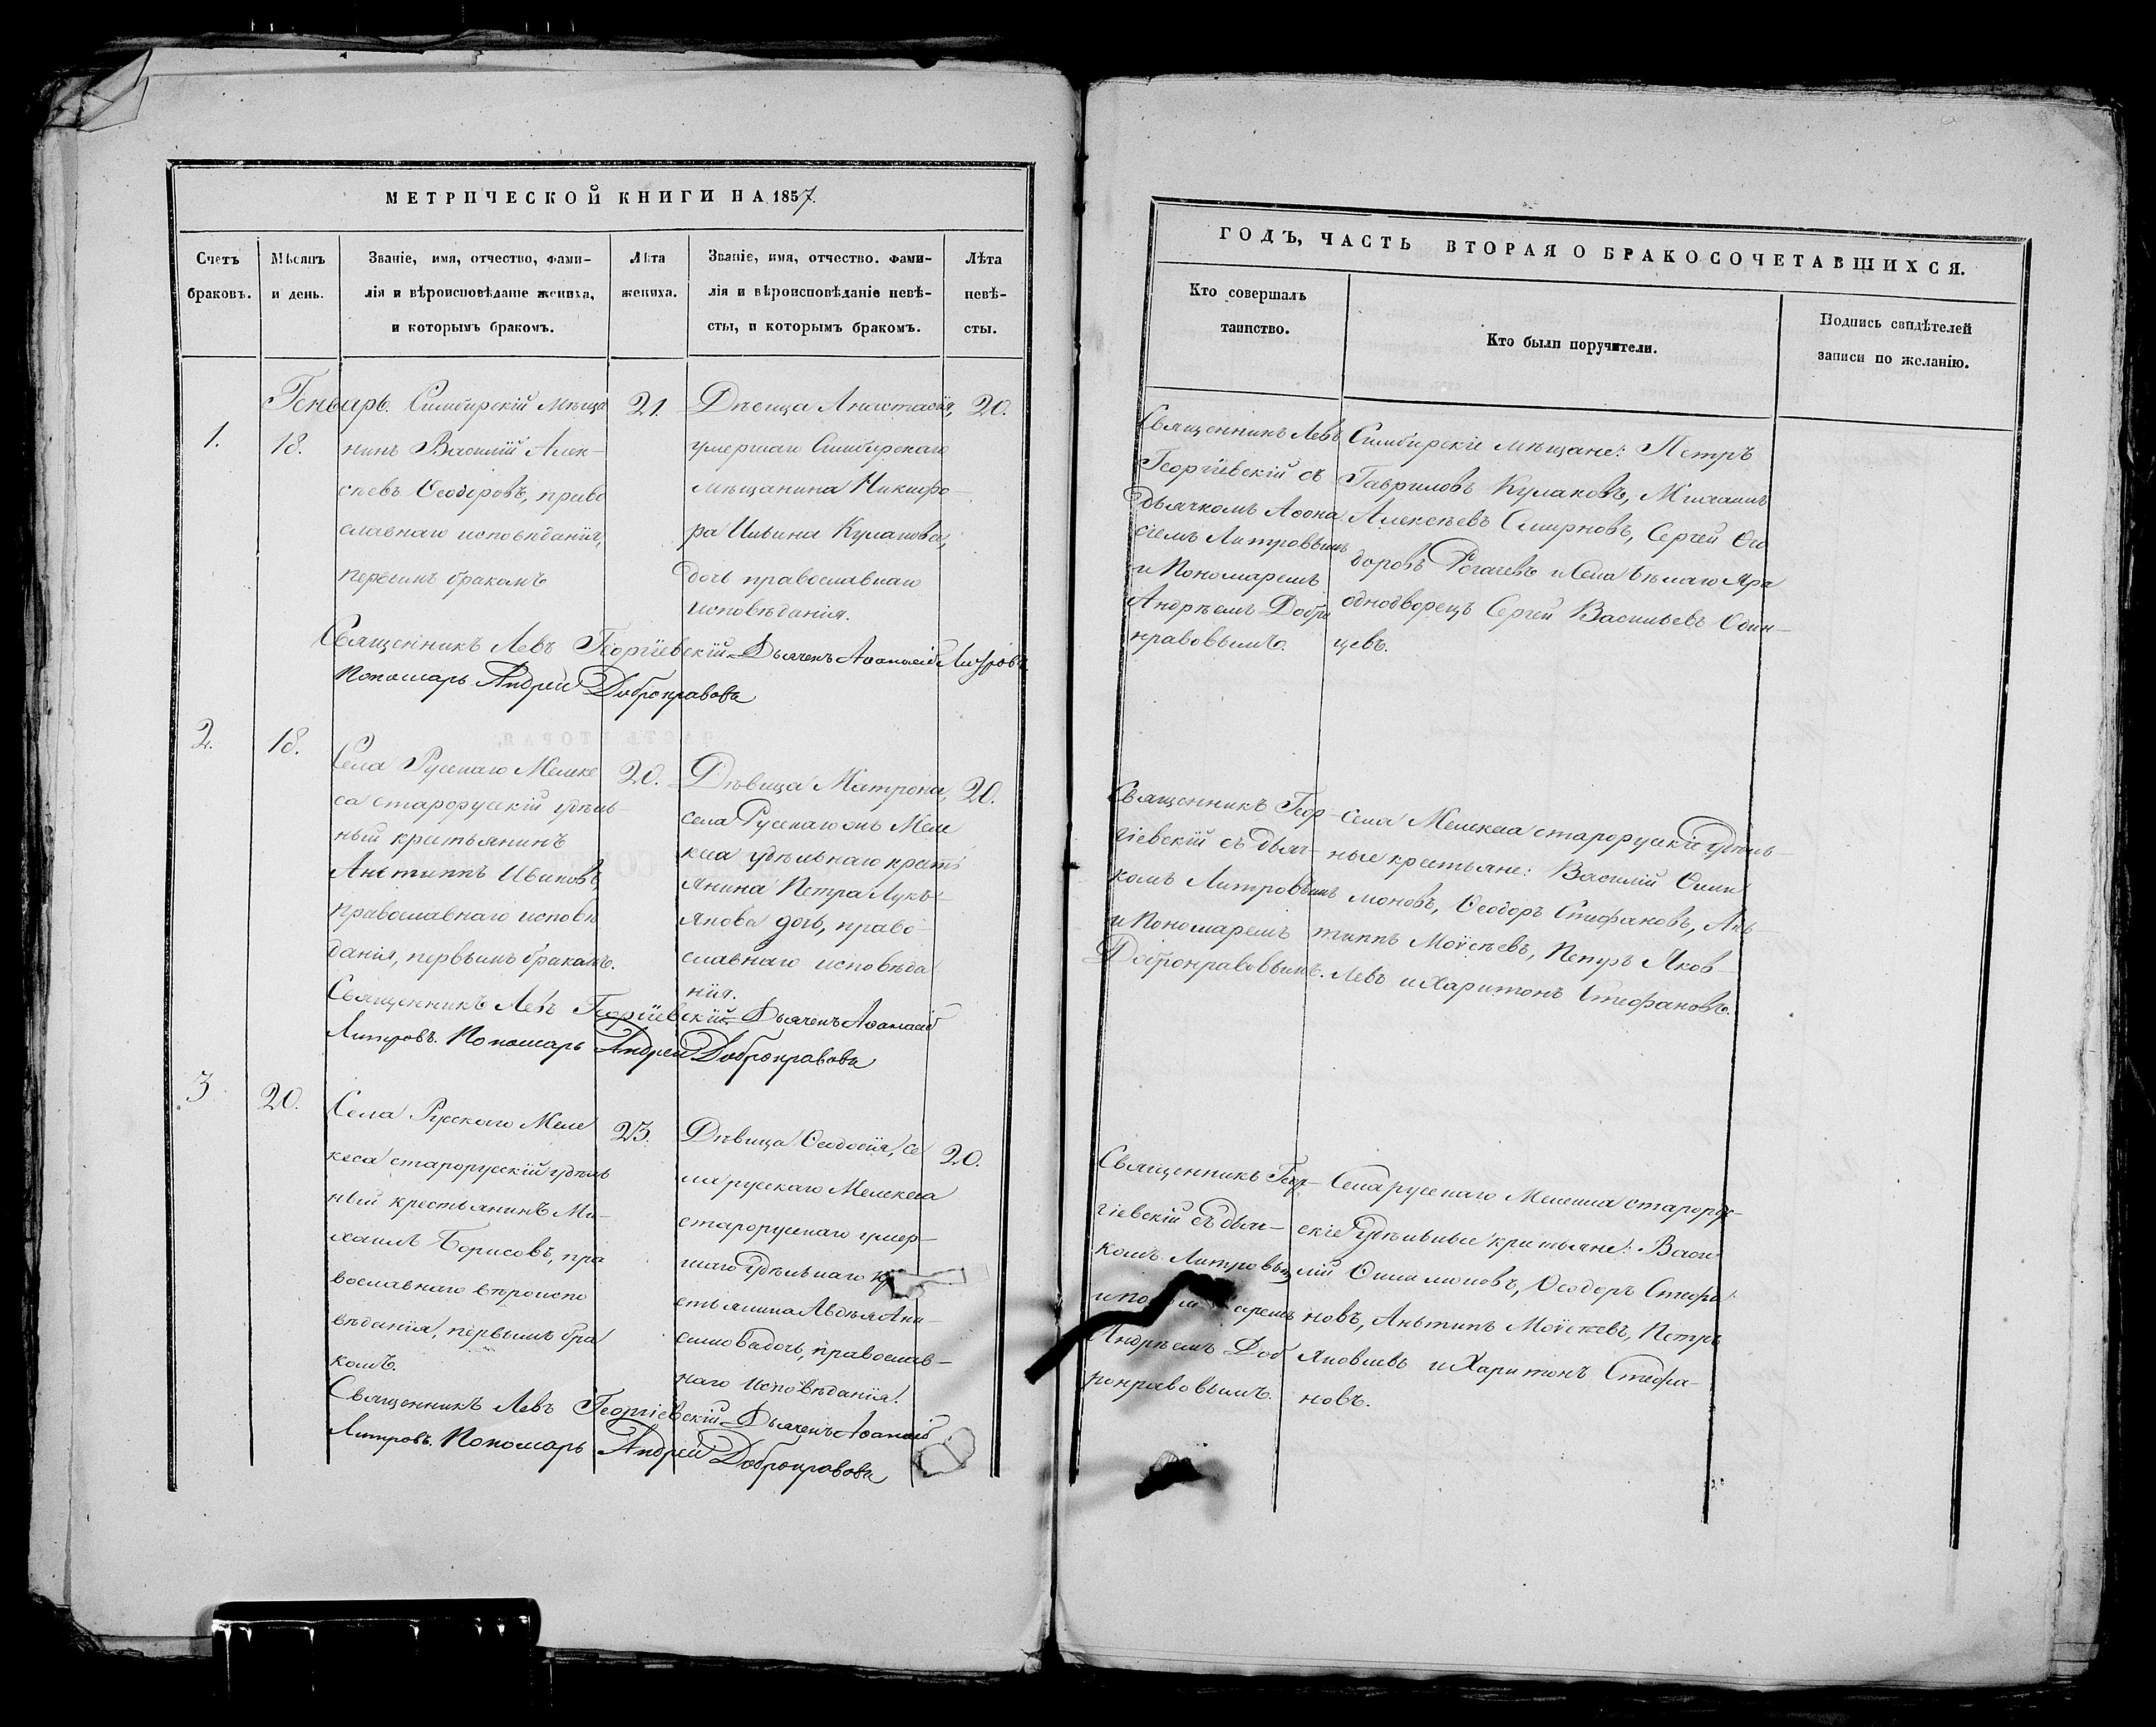 МЕТРИЧЕСКОЙ КНИГИ НА 1857.
Счетъ
браковъ.
Мѣсяцъ
и день.
Званіе, имя, отчество, фами-
лія и вѣроисповѣданіе жениха,
и которымъ бракомъ.
Лѣта
жениха.
Званіе, имя, отчество. фами-
лія и вѣроисповѣданіе невѣ-
сты, и которымъ бракомъ.
Лѣта
невѣ-
сты.
1.
Генварь.
18.
Симбирскій мѣща
нинъ Василій Алек-
сѣевъ Ѳеодоровъ, право
славнаго исповѣданія,
первымъ бракомъ
21.
Дѣвица Анастасія,
умершаго Симбирскаго
мѣщанина Никифо-
ра Ильина Кулакова,
дочь православнаго
исповѣданія.
20.
Священникъ Левъ Георгіевскій Дьячекъ Аѳанасій Литровъ.
Пономарь Андрей Добронравовъ
2.
18.
Села Русскаго Мелеке
са старорусскій удѣль-
ный крестьянинъ
Антиппъ Ивановъ,
православнаго исповѣ
данія, первымъ бракомъ.
20.
Дѣвица Матрона,
села Русскаго Меле
кеса удѣльнаго кресть
янина Петра Лукь-
янова дочь, право-
славнаго исповѣда
нія.
20.
Священникъ Левъ Георгіевскій Дьячекъ Аѳанасій
Литровъ. Пономарь Андрей Добронравовъ
3
20.
Села Русскаго Меле
кеса старорусскій удѣль
ный крестьянинъ Ми-
хаилъ Борисовъ, пра
вославнаго вѣроиспо
вѣданія, первымъ бра
комъ.
23.
Дѣвица Ѳеодосія, се
ла русскаго Мелекеса
старорусскаго умер-
шаго удѣльнаго кр
стьянина Авдѣя Ани-
симова дочь, православ-
наго исповѣданія.
20.
Священникъ Левъ Георгіевскій Дьячекъ Аѳанасій
Литровъ. Пономарь Андрей Добронравовъ
ГОДЪ, ЧАСТЬ ВТОРАЯ О БРАКОСОЧЕТАВШИХСЯ.
Кто совершалъ
таинство.
Кто были поручители.
Подпись свидѣтелей
записи по желанію.
Священникъ Левъ
Георгіевскій съ
дьячкомъ Аѳона
сіемъ Литровымъ
и Пономаремъ
Андрѣемъ Добро
нравовымъ.
Симбирскіе мѣщане: Петръ
Гавриловъ Кулаковъ, Михаилъ
Алексѣевъ Смирновъ, Сергей Ѳео
доровъ Рогачевъ и Села Бѣлаго Яра
однодворецъ Сергей Васильевъ Один-
цевъ.
Священникъ Геор-
гіевскій съ дьяч-
комъ Литровымъ
и Пономаремъ
Добронравовымъ.
Села Мелекеса старорускіе удѣль-
ные крестьяне: Василій Фили
моновъ, Ѳеодоръ Стефановъ, Ан-
типпъ Мойсѣевъ, Петръ Яков-
левъ и Харитонъ Стефановъ.
Священникъ Геор-
гіевскій съ дьяч-
комъ Литровым
Андрѣемъ Доб
ронравовымъ.
Села русскаго Мелекеса старорус-
скіе удѣльные крестьяне: Васи-
лій Филимоновъ, Ѳеодоръ Стефа-
новъ, Антипъ Мойсѣевъ, Петръ
Яковлевъ и Харитонъ Стефа-
новъ.